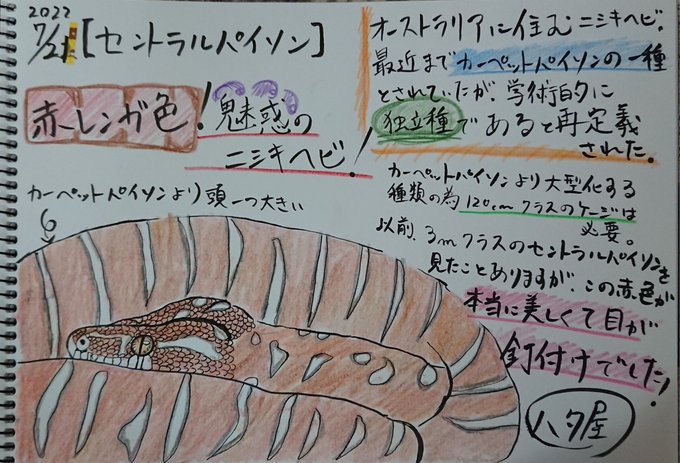 2022
7/21 [セントラルパイソン]
赤レンガ色! 魅惑の
ニシキヘビ!
オーストラリアに住むニシキヘビ。
最近までカーペットパイソンの一種
とされていたが、学術的に
独立種であると再定義
された。
カーペットパイソンより頭一つ大きい
カーペットパイソンより大型化する
種類の為120cmクラスのケージは
必要。
以前、3mクラスのセントラルパイソンを
見たことありますが、この赤色が
本当に美しくて目が
釘付けでした!
ハタ屋